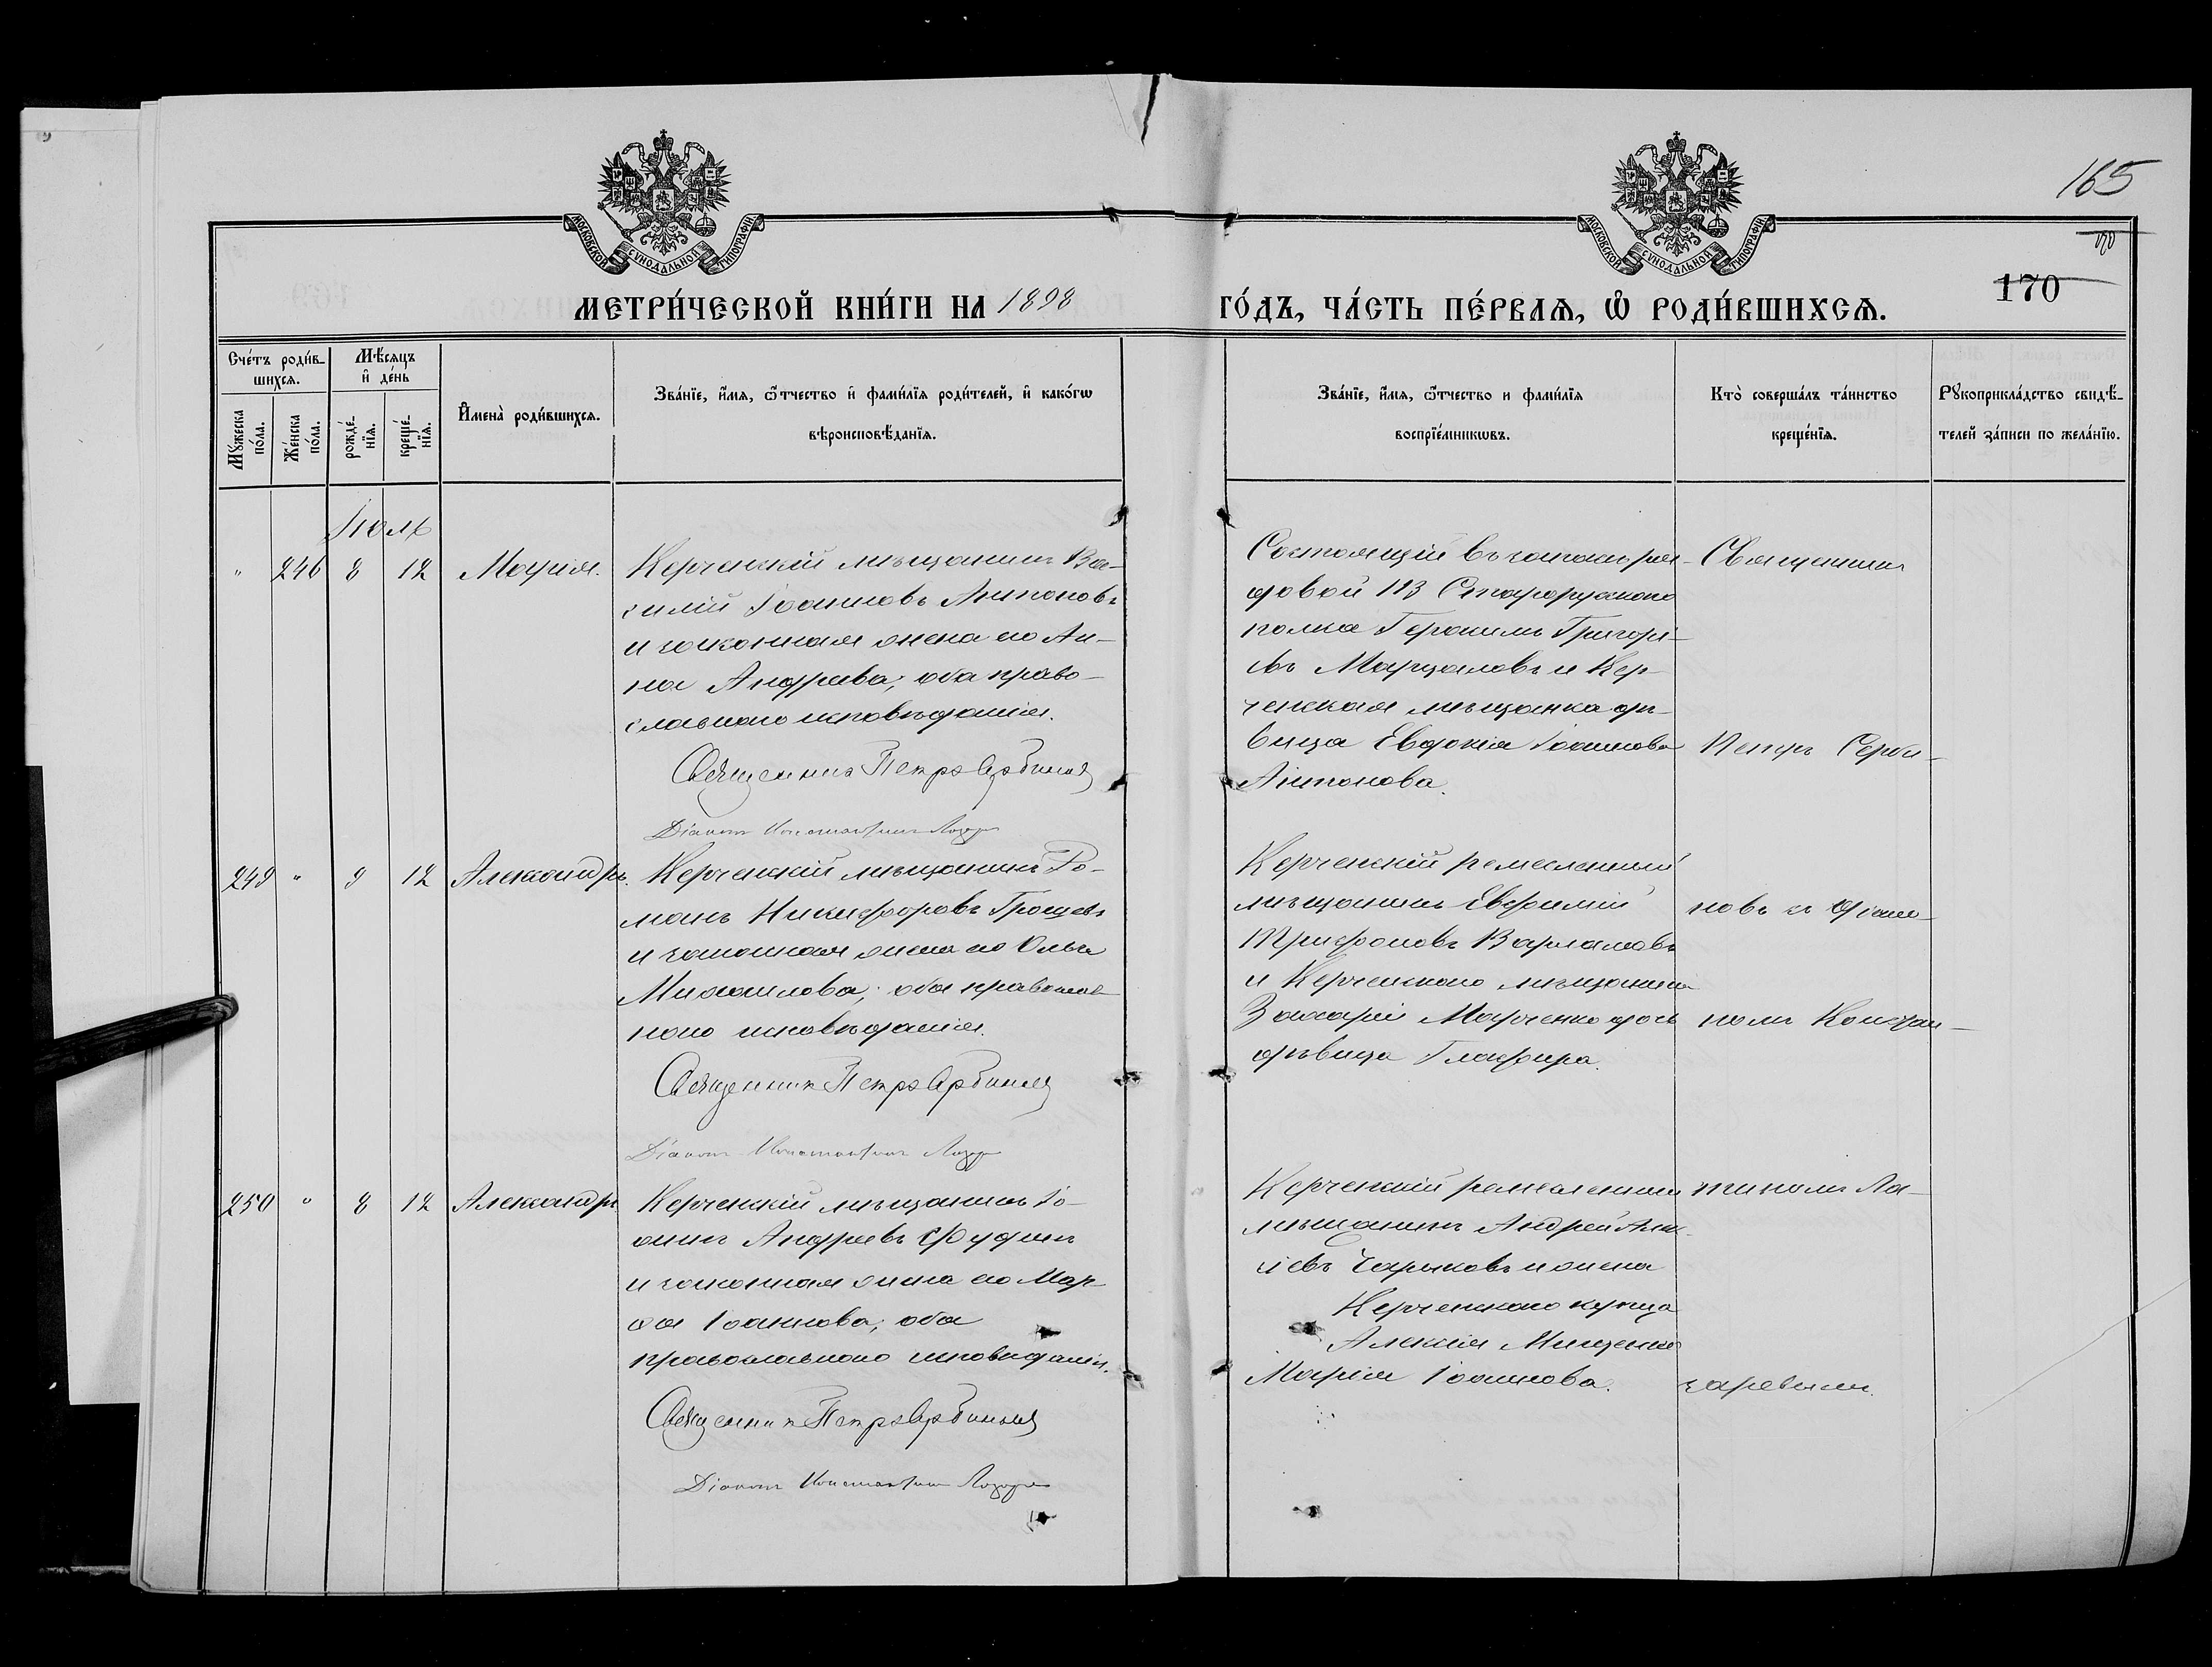 165
170
170
МОСКОВСКОЙ СѴНОДАЛЬНОЙ ТИПОГРАФІИ
МОСКОВСКОЙ СѴНОДАЛЬНОЙ ТИПОГРАФІИ
МЕТРИ́ЧЕСКОЙ КНИ́ГИ НА 1898 ГО́ДЪ, ЧА́СТЬ ПЕ́РВАѦ, Ѽ РОДИ́ВШИХСѦ.
Сче́тъ роди́в-
шихсѧ.
Мужеска по́ла.
Же́нска по́ла.
Мѣ́сяцъ и де́нь
рожде́-нїѧ.
креще́-нїѧ.
Имена̀ роди́вшихсѧ.
Зва́нїе, и́мѧ, ѻ́тчество и фами́лїѧ роди́телей, и како́гѡ
вѣроисповѣ́данїѧ.
Зва́нїе, и́мѧ, ѻ́тчество и фами́лїѧ
воспрїе́мникѡвъ.
Кто̀ соверша́лъ та́инство
креще́нїѧ.
Рꙋкоприкла́дство свидѣ́-
телей за́писи по жела́нїю.
Іюль
" 246 8 12 Марія.
Керченскій мѣщанинъ Ва-
силій Іоанновъ Антоновъ
и законная жена его Ан-
на Андреева; оба право-
славнаго исповѣданія.
Священникъ Петръ
Діаконъ Константинъ
Состоящій въ запасѣ ря-
довой 113 Старорусскаго
полка Герасимъ Григорі-
евъ Марцаловъ и Кер-
ченская мѣщанка дѣ-
вица Евдокія Іоаннова
Антонова.
Священникъ
Петръ Серби-
249 " 9 12 Александръ.
Керченскій мѣщанинъ Ро-
манъ Никифоровъ Грошевъ
и законная жена его Ольга
Михаилова; оба православ-
наго исповѣданія.
Священникъ Петръ
Діаконъ Константинъ
Керченскій ремесленный
мѣщанинъ Евфимій
Трифоновъ Варламовъ
и Керченскаго мѣщанина
Захарія Марченко дочь
дѣвица Глафира.
новъ съ діако-
номъ Констан-
250 " 8 12 Александръ
Керченскій мѣщанинъ Іо-
аннъ Андреевъ
и законная жена его Мар-
ѳа Іоаннова; оба
православнаго исповѣданія.
Священникъ Петръ
Діаконъ Константинъ
Керченскій ремесленный
мѣщанинъ Андрей Алек-
сіевъ Чарыковъ и жена
Керченскаго купца
Алексія Мищенко
Марія Іоаннова.
тиномъ Ла-
заревымъ.